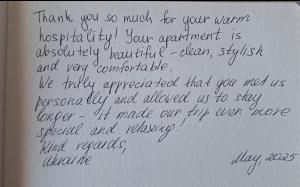 Thank you so much for your warm
hospitality! Your apartment is
absolutely beautiful – clean, stylish
and very comfortable.
We truly appreciated that you met us
personally and allowed us to stay
longer – it made our trip even more
special and relaxing!
Kind regards,
Ukraine
May, 2025